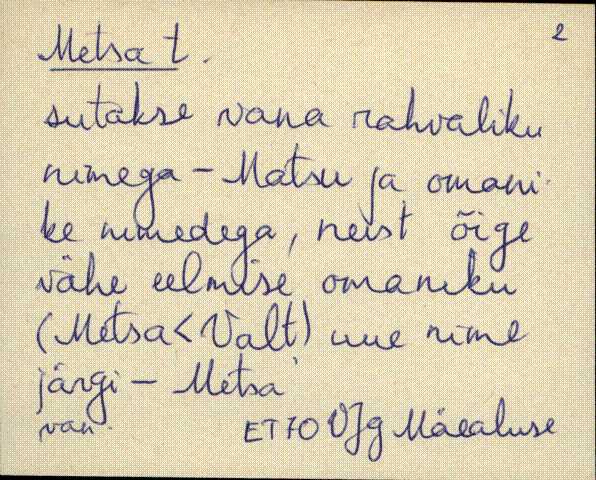 2
Metsa t.
sutakse vana rahvaliku
nimega - Matsu ja omani-
ke nimedega, neist õige
vähe eelmise omaniku
(Metsa < Valt) uue nime
järgi - Metsa
van. ET 70 VJg Mäealuse